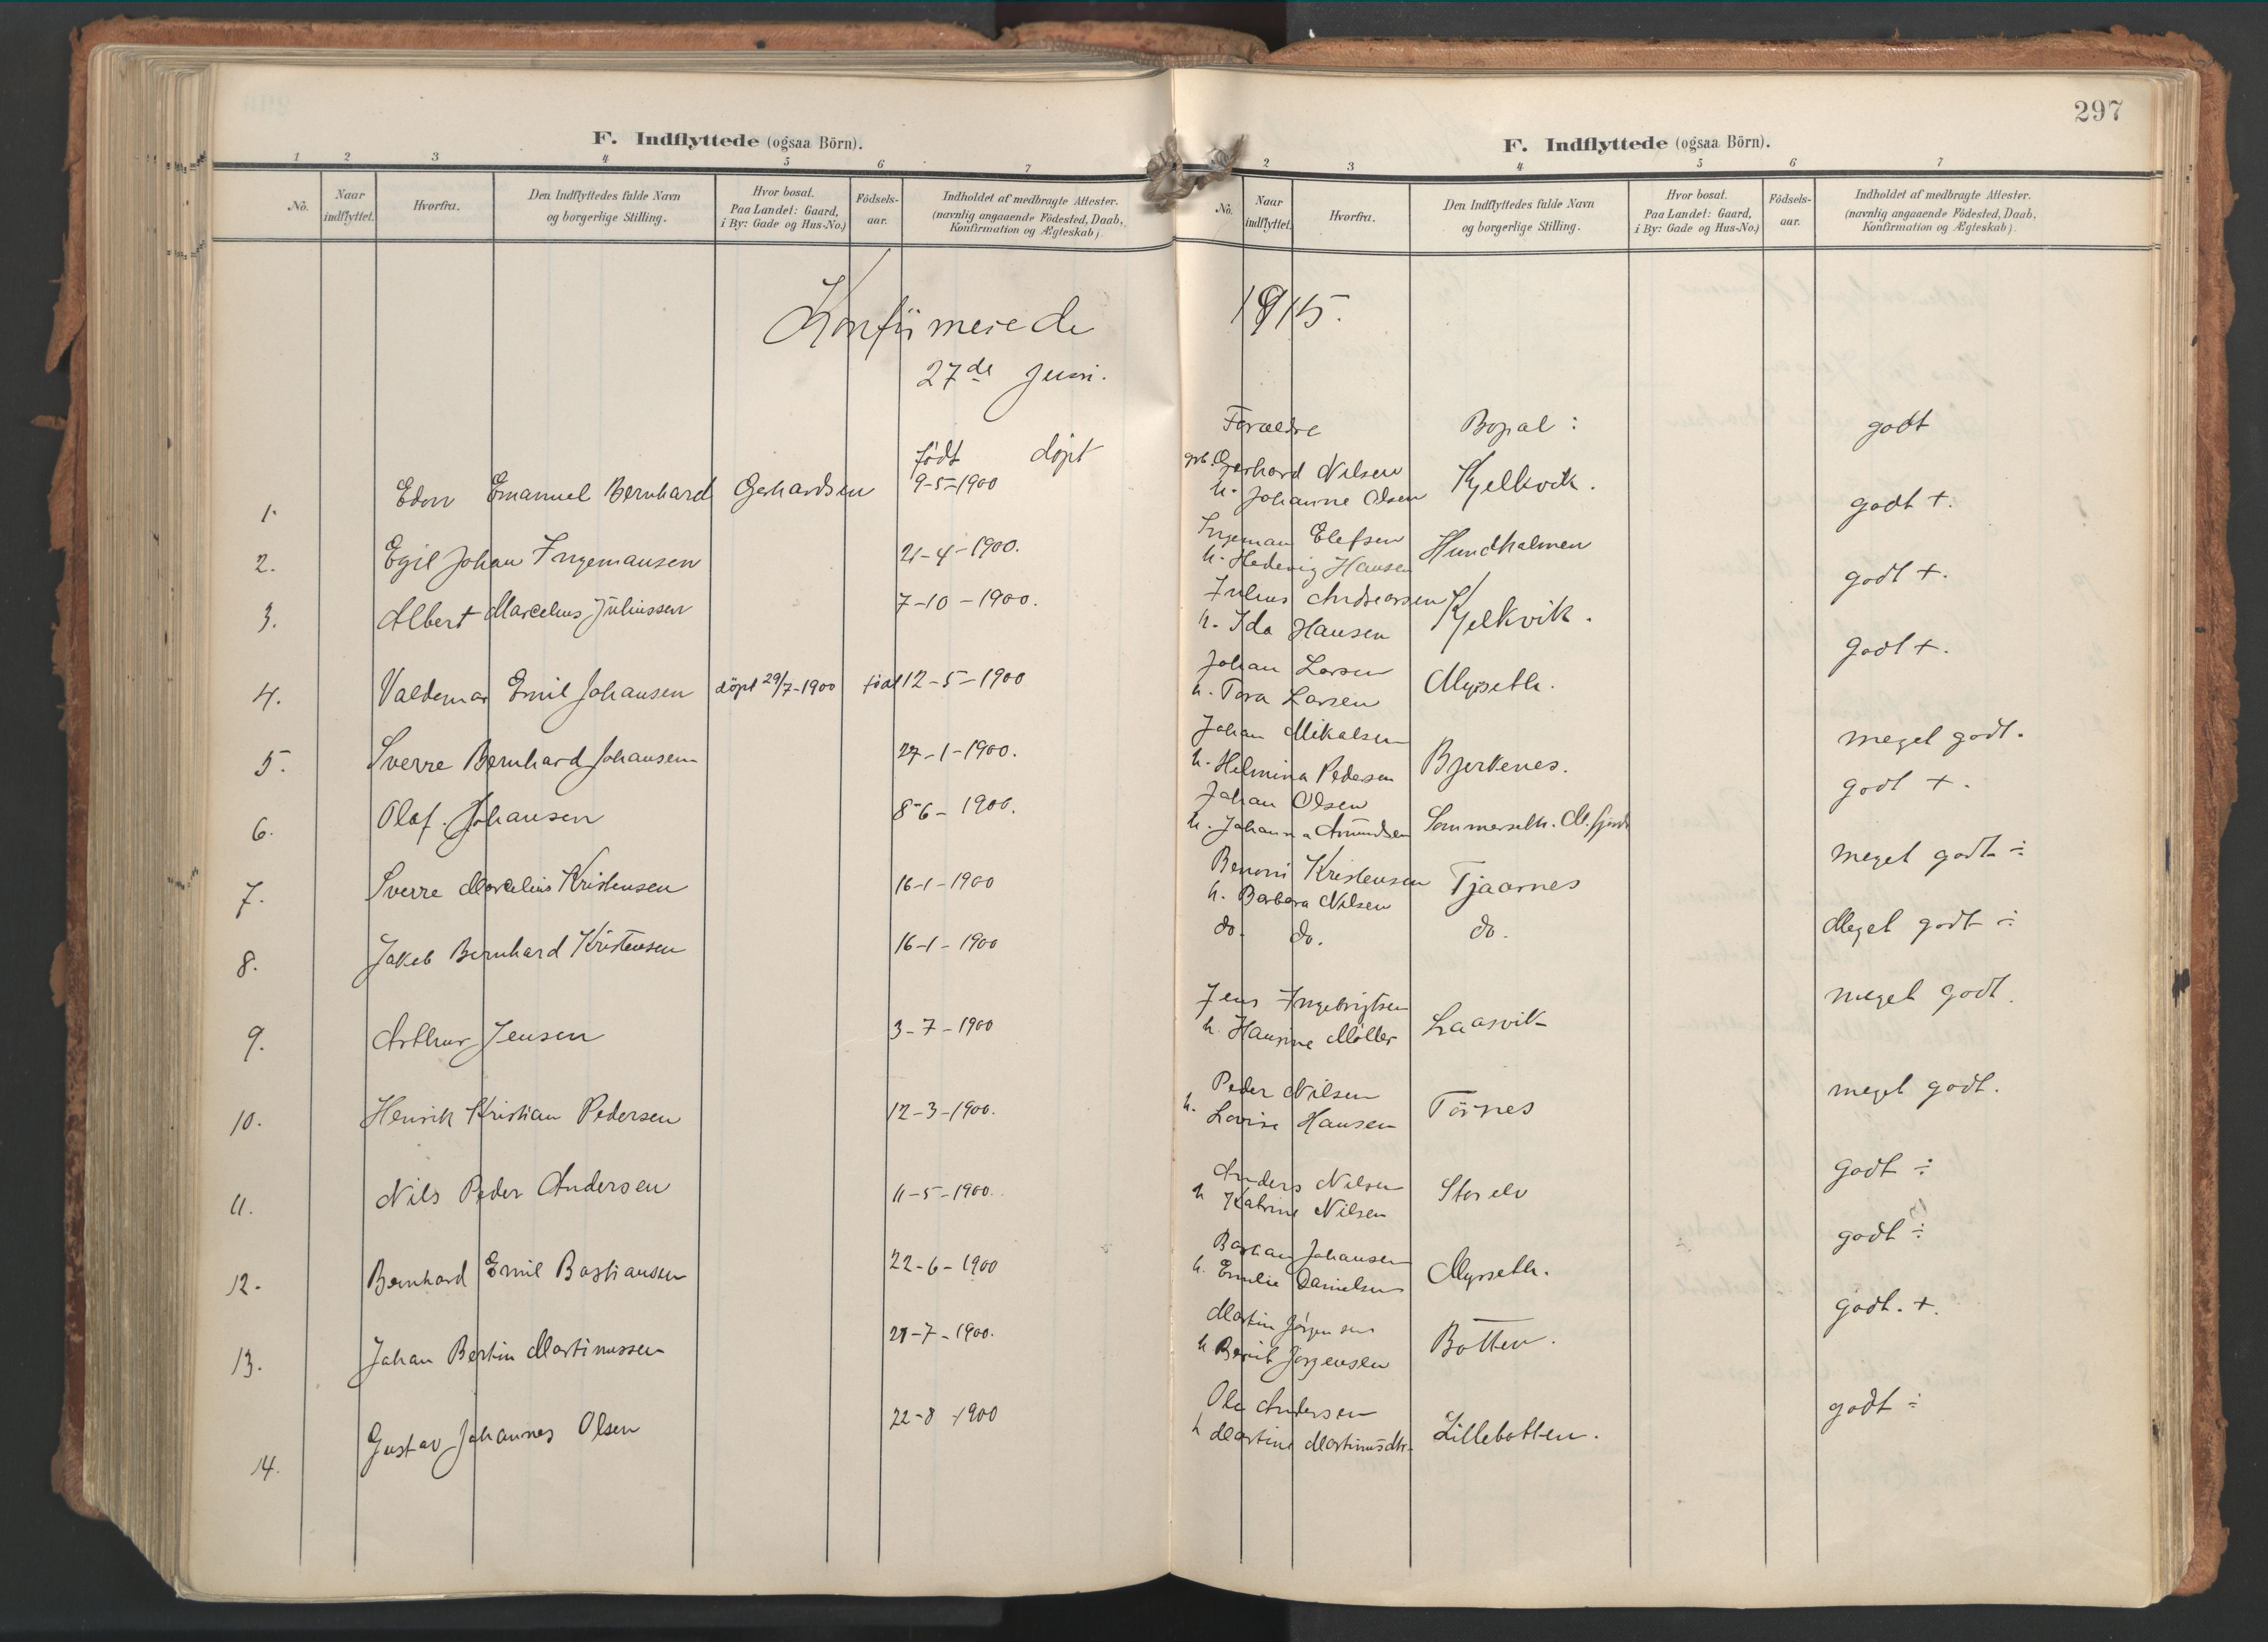 F. Indflyttede (ogsaa Börn).
1 2 3 4 5 6 7
No. Naar indflyttet. Hvorfra. Den Indflyttedes fulde Navn og borgerlige Stilling. Hvor bosat. Paa Landet: Gaard, i By: Gade og Hus-No.) Födsels-aar. Indholdet af medbragte Attester. (navnlig angaaende Födested, Daab, Konfirmation og Ægteskab).
Konfirmerede
27de Juni.
født døpt
1. Edon Emanuel Bernhard Gerhardsen 9-5-1900
2. Egil Johan Ingemansen 21-4-1900.
3. Albert Marcelius Juliussen 7-10-1900.
4. Valdemar Emil Johansen döpt 29/7-1900 född 12-5-1900
5. Sverre Bernhard Johansen 27-1-1900.
6. Olaf Johansen 8-6-1900.
7. Sverre Marcelius Kristensen 16-1-1900
8. Jakob Bernhard Kristensen 16-1-1900
9. Arthur Jensen 3-7-1900
10. Henrik Kristian Pedersen 12-3-1900.
11. Nils Peder Andersen 11-5-1900.
12. Bernhard Emil Bastiansen 22-6-1900
13. Johan Bertin Martinussen 21-7-1900.
14. Gustav Johannes Olsen 22-8-1900
297
F. Indflyttede (ogsaa Börn).
2 3 4 5 6 7
No. Naar indflyttet. Hvorfra. Den Indflyttedes fulde Navn og borgerlige Stilling. Hvor bosat. Paa Landet: Gaard, i By: Gade og Hus-No.) Födsels-aar. Indholdet af medbragte Attester. (navnlig angaaende Födested, Daab, Konfirmation og Ægteskab).
1915.
Forældre Bopal: godt
Gerhard Nilsen
h. Johanne Olsen Kjelkvik. godt +.
Ingeman Elefsen
h. Hedevig Hansen Hundholmen godt +.
Julius Andreassen
h. Ida Hansen Kjelkvik. godt +.
Johan Larsen
h. Tora Larsen Myrseth.
Johan Mikalsen meget godt.
h. Helmina Pedersen Bjerkenes.
Johan Olsen godt +.
h. Johanna Amundsen Sommerseth. M.fjord
Benoni Kristensen meget godt ÷
h. Barbara Nilsen Tjaarnes
do. do. do. Meget godt ÷
Jens Ingebrigtsen meget godt.
h. Hansine Möller Laasvik
Peder Nilsen meget godt.
h. Lovise Hansen Törnes
Anders Nilsen godt ÷
h Katrine Nilsen Storelv
Bastian Johansen godt ÷
h. Emelie Danielsen Myrseth.
Martin Jörgensen godt. +.
h Berit Jörgensen Botten.
Ole Andersen godt ÷
h Martine Martinusdtr. Lillebotten.